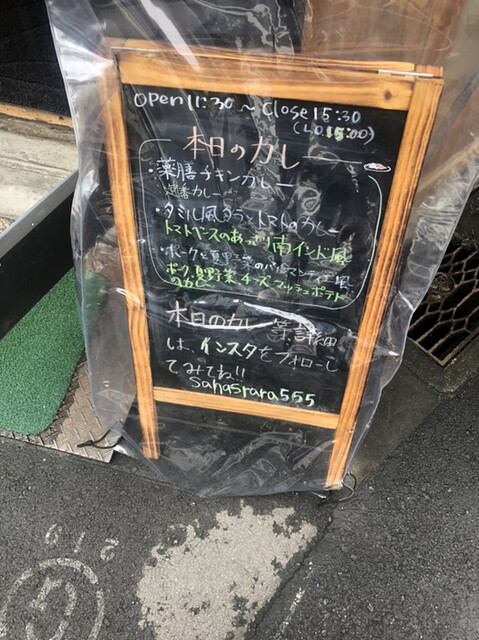 open 11:30 〜 close 15:30
(L.O.15:00)
本日のカレー
・薬膳チキンカレー
定番カレー
・タミル風タラとトマトのカレー
トマトベースのあっさり南インド風
・ポークと夏野菜のパルマンティエ風
ポーク、夏野菜、チーズ、マッシュポテト
のカレー
本日のカレー等、詳細
は、インスタをフォローし
てみてね!!
sahasrara555